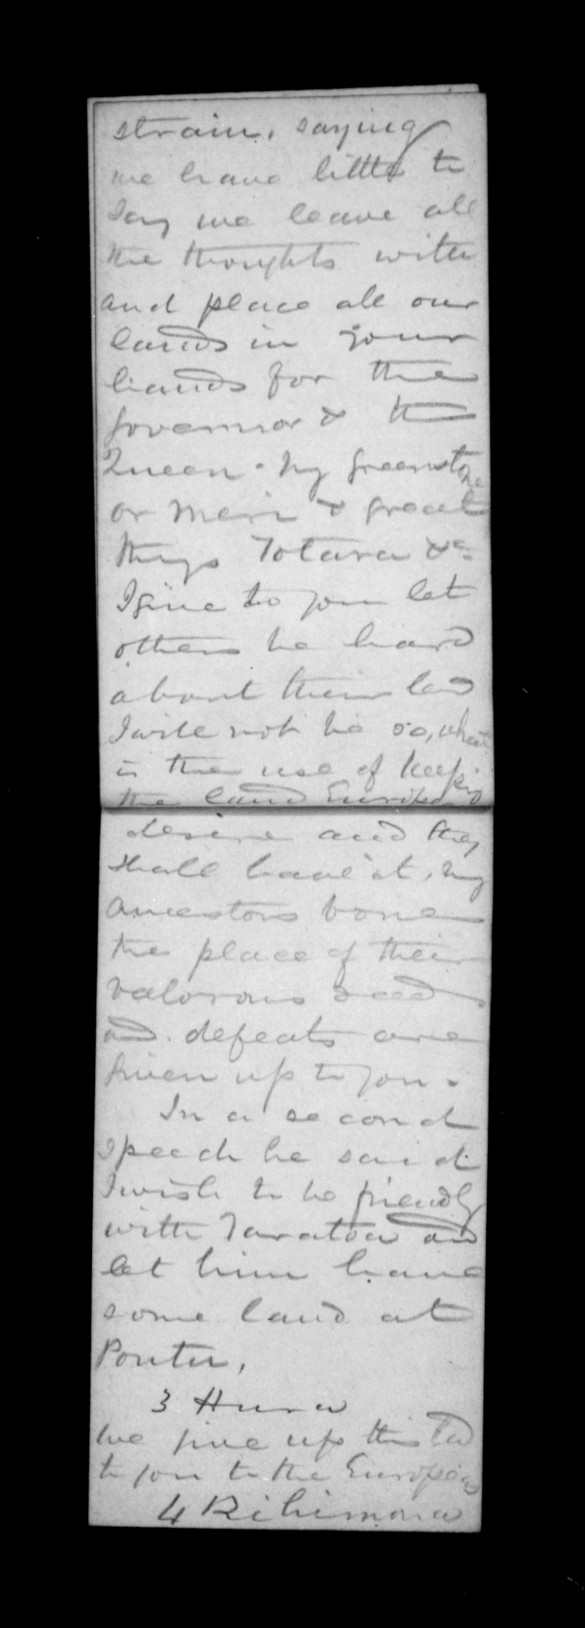 strain, saying
we have little to
say we leave all
the thoughts with
and place all our
lands in your
hands for the
Governor & the
Queen. My greenstone
or meri & great
things Totara &c
I give to you let
others be hard
about their land
I will not be so, what
is the use of keeping
the land
desire and they
shall have it, my
ancestors bones
the place of their
valorous deeds
and defeats are
given up to you.
In a second
speech he said
I wish to be friendly
with and
let him have
some land at
3 Hura
we give up this land
to you to the Europeans
4 Rihimona